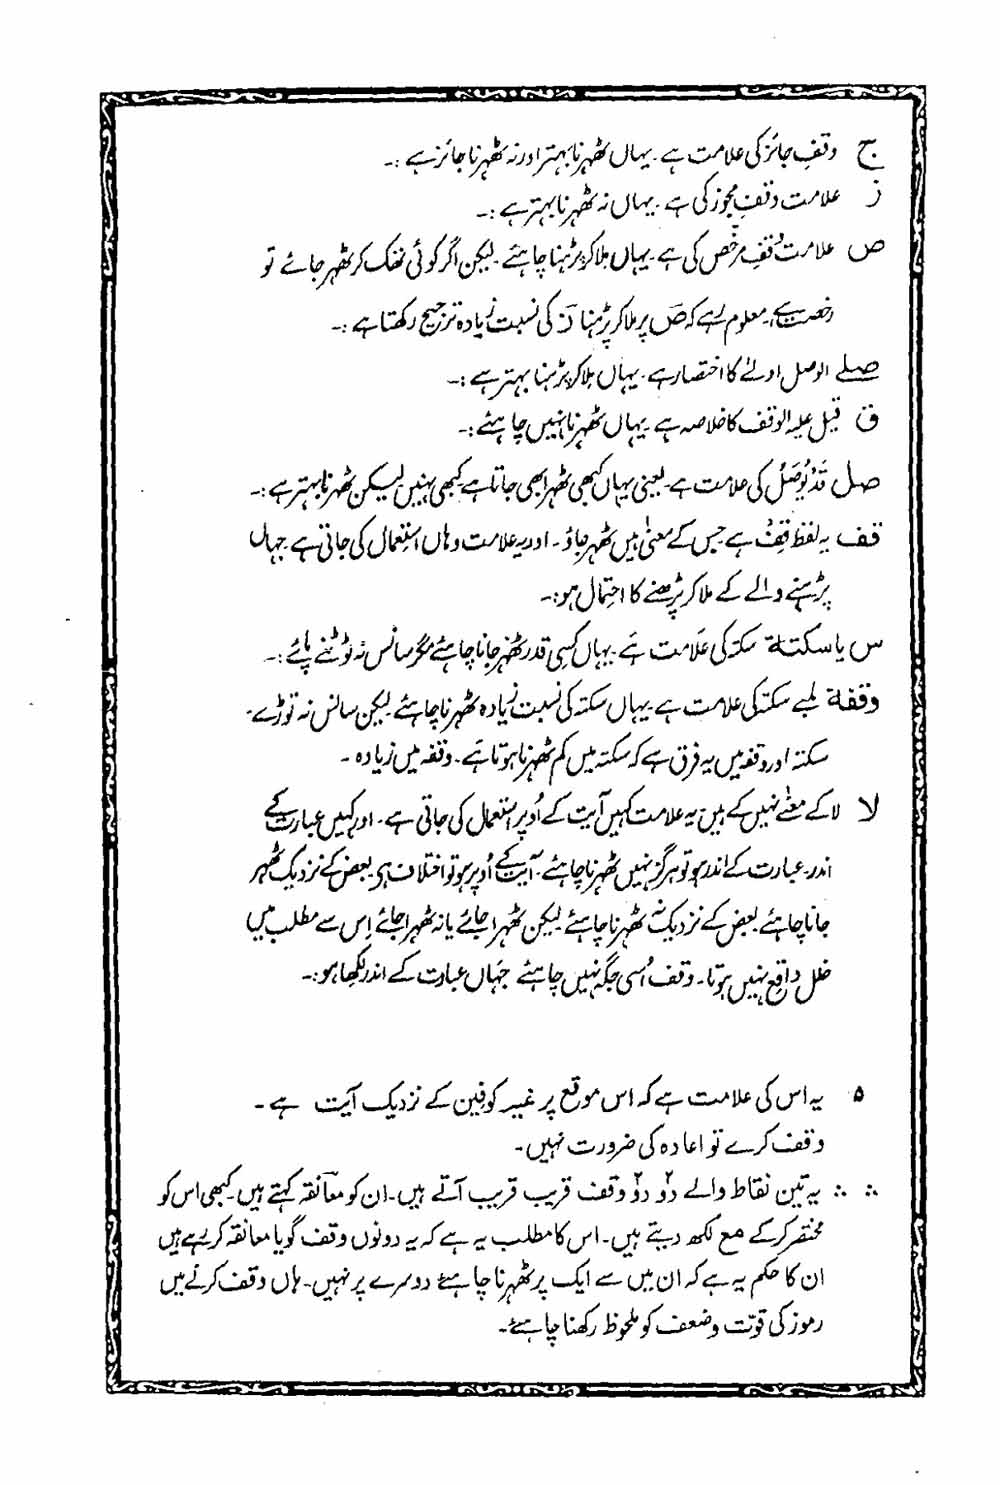 ج وقفِ جائز کی علامت ہے۔ یہاں ٹھہرنا بہتر اور نہ ٹھہرنا جائز ہے :۔
ز علامت وقفِ مجوز کی ہے۔ یہاں نہ ٹھہرنا بہتر ہے :۔
ص علامت وقفِ مرخص کی ہے۔ یہاں ملا کر پڑہنا چاہئے۔ لیکن اگر کوئی تھک کر ٹھہر جائے تو
رخصت ہے۔ معلوم رہے کہ ص پر ملا کر پڑہنا ز کی نسبت زیادہ ترجیح رکھتا ہے :۔
صلے الوصل اولےٰ کا اختصار ہے۔ یہاں ملا کر پڑہنا بہتر ہے :۔
ق قیل علیہ الوقف کا خلاصہ ہے۔ یہاں ٹھہرنا نہیں چاہئے :۔
صل قَدْ یُوصَلُ کی علامت ہے۔ یعنی یہاں کبھی ٹھہرا بھی جاتا ہے کبھی نہیں لیکن ٹھہرنا بہتر ہے :۔
قف یہ لفظ قِفْ ہے جس کے معنیٰ ہیں ٹھہر جاؤ۔ اور یہ علامت وہاں استِعمال کی جاتی ہے۔ جہاں
پڑہنے والے کے ملا کر پڑھنے کا احتِمال ہو :۔
س یا سکتة سکتہ کی علامت ہے۔ یہاں کسی قدر ٹھہر جانا چاہئے مگر سانس نہ ٹوٹنے پائے :۔
وقفة لمبے سکتہ کی علامت ہے۔ یہاں سکتہ کی نسبت زیادہ ٹھہرنا چاہئے۔ لیکن سانس نہ توڑے۔
سکتہ اور وقفہ میں یہ فرق ہے کہ سکتہ میں کم ٹھہرنا ہوتا ہے۔ وقفہ میں زیادہ ۔
لا لا کے معنےٰ نہیں کے ہیں۔ یہ علامت کہیں آیت کے اُوپر استعمال کی جاتی ہے۔ اور کہیں عبارت کے
اندر۔ عبارت کے اندر ہو تو ہرگز نہیں ٹھہرنا چاہئے۔ آیت کے اُوپر ہو تو اختلاف ہی بعض کے نزدیک ٹھہر
جانا چاہئے بعض کے نزدیک نہ ٹھہرنا چاہئے لیکن ٹھہرا جائے یا نہ ٹھہرا جائے اِس سے مطلب میں
خلل واقع نہیں ہوتا۔ وقف اُسی جگہ نہیں چاہئے جہاں عبارت کے اندر لکھا ہو :۔
۵ یہ اس کی علامت ہے کہ اس موقع پر غیر کوفیین کے نزدیک آیت ہے ۔
وقف کرے تو اعادہ کی ضرورت نہیں۔
∴ ∴ یہ تین نقاط والے دو دو وقف قریب قریب آتے ہیں۔ ان کو معانقہ کہتے ہیں۔ کبھی اس کو
مختصر کر کے مع لکھ دیتے ہیں۔ اس کا مطلب یہ ہے کہ یہ دونوں وقف گویا معانقہ کر رہے ہیں
ان کا حکم یہ ہے کہ ان میں سے ایک پر ٹھہرنا چاہئے دوسرے پر نہیں۔ ہاں وقف کرنے میں
رموز کی قوّت و ضعف کو ملحوظ رکھنا چاہئے۔